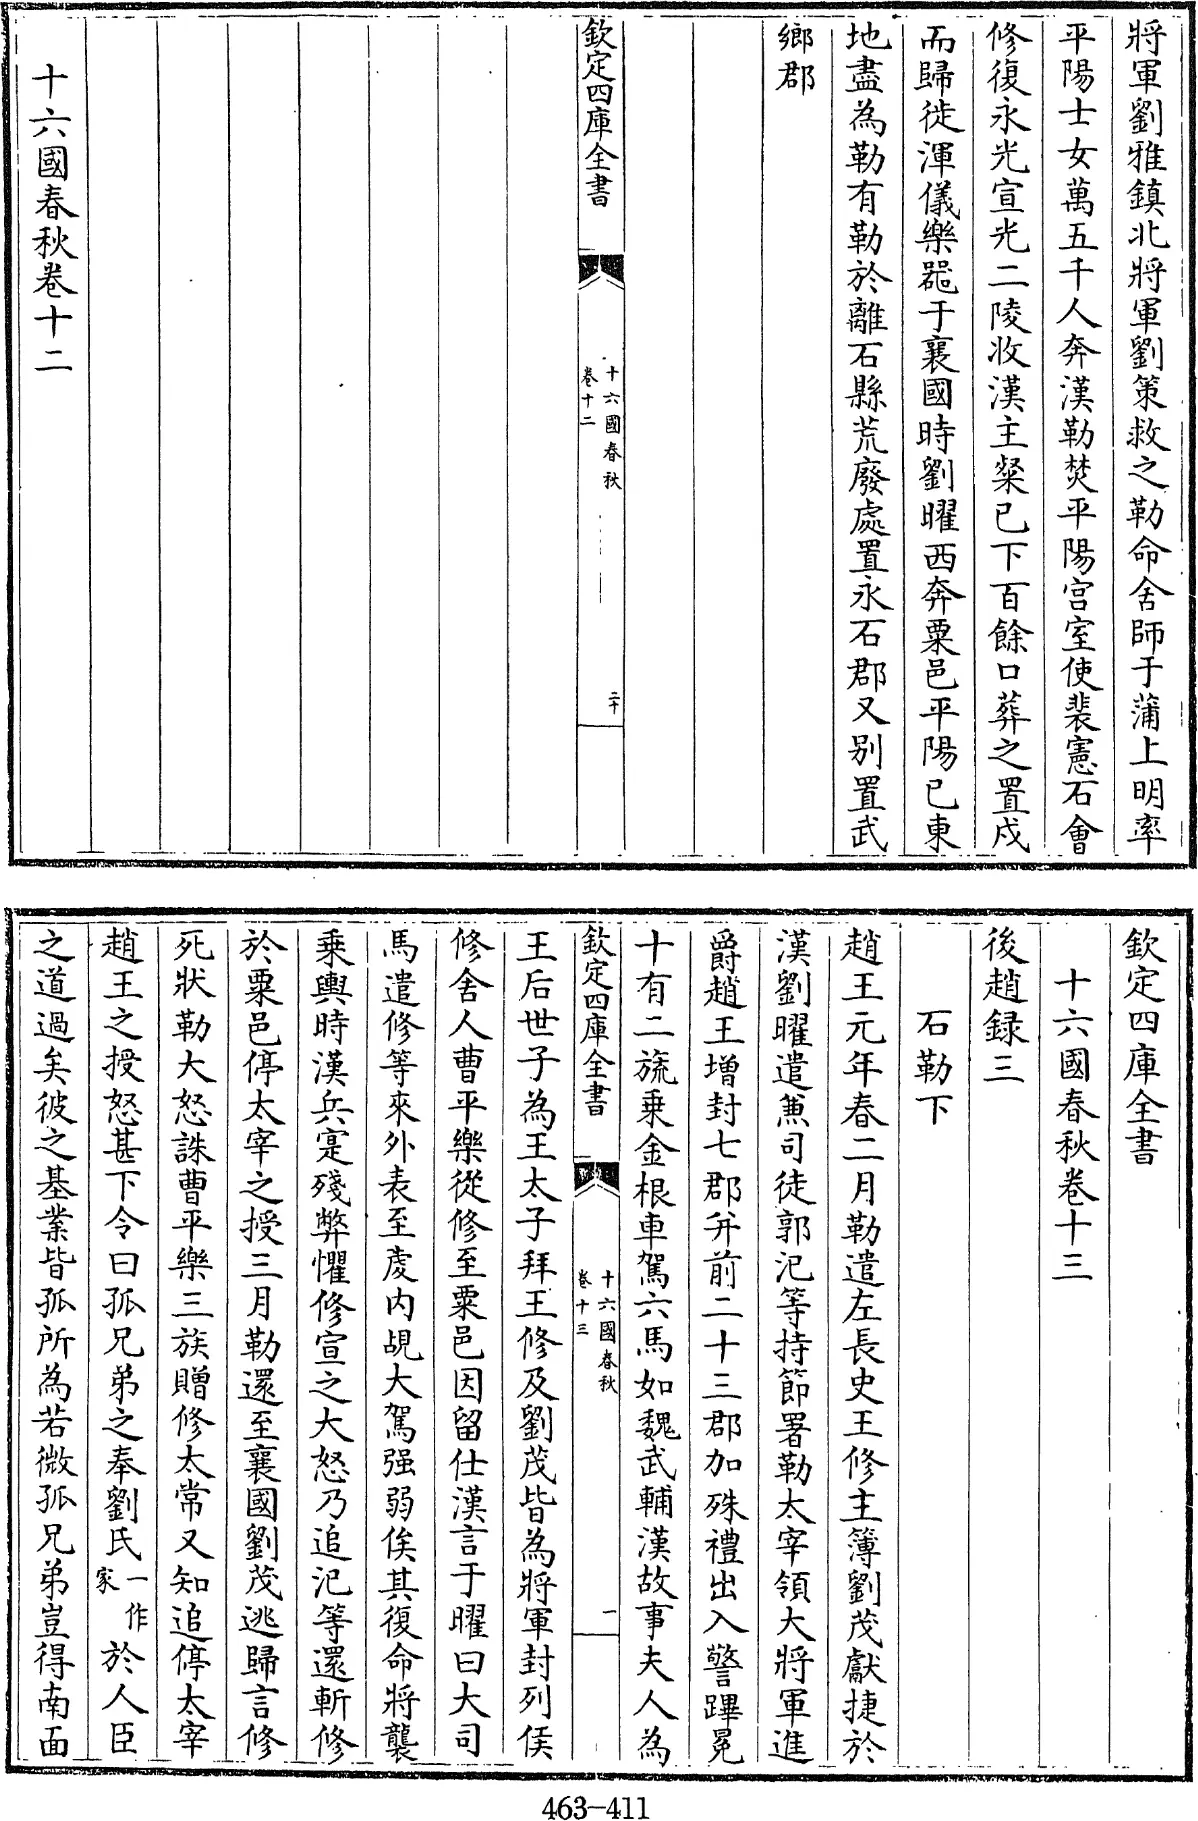 將軍劉雅鎮北將軍劉策救之勒命舍師于蒲上明率
平陽士女萬五千人奔漢勒焚平陽宫室使裴憲石會
修復永光宣光二陵收漢主粲已下百餘口葬之置戍
而歸徙渾儀樂噐于襄國時劉曜西奔粟邑平陽已東
地盡為勒有勒於離石縣荒廢處置永石郡又别置武
鄉郡
欽定四庫全書
十六國春秋
卷十二
二十
十六國春秋卷十二
欽定四庫全書
十六國春秋卷十三
後趙録三
石勒下
趙王元年春二月勒遣左長史王修主簿劉茂獻捷於
漢劉曜遣兼司徒郭汜等持節署勒太宰領大將軍進
爵趙王增封七郡并前二十三郡加殊禮出入警蹕冕
十有二旒乗金根車駕六馬如魏武輔漢故事夫人為
欽定四庫全書
十六國春秋
卷十三
一
王后世子為王太子拜王修及劉茂皆為將軍封列侯
修舍人曹平樂從修至粟邑因留仕漢言于曜曰大司
馬遣修等來外表至虔内覘大駕强弱俟其復命將襲
乗輿時漢兵寔殘弊懼修宣之大怒乃追汜等還斬修
於粟邑停太宰之授三月勒還至襄國劉茂逃歸言修
死狀勒大怒誅曹平樂三族贈修太常又知追停太宰
趙王之授怒甚下令曰孤兄弟之奉劉氏一作家於人臣
之道過矣彼之基業皆孤所為若微孤兄弟豈得南面
463-411